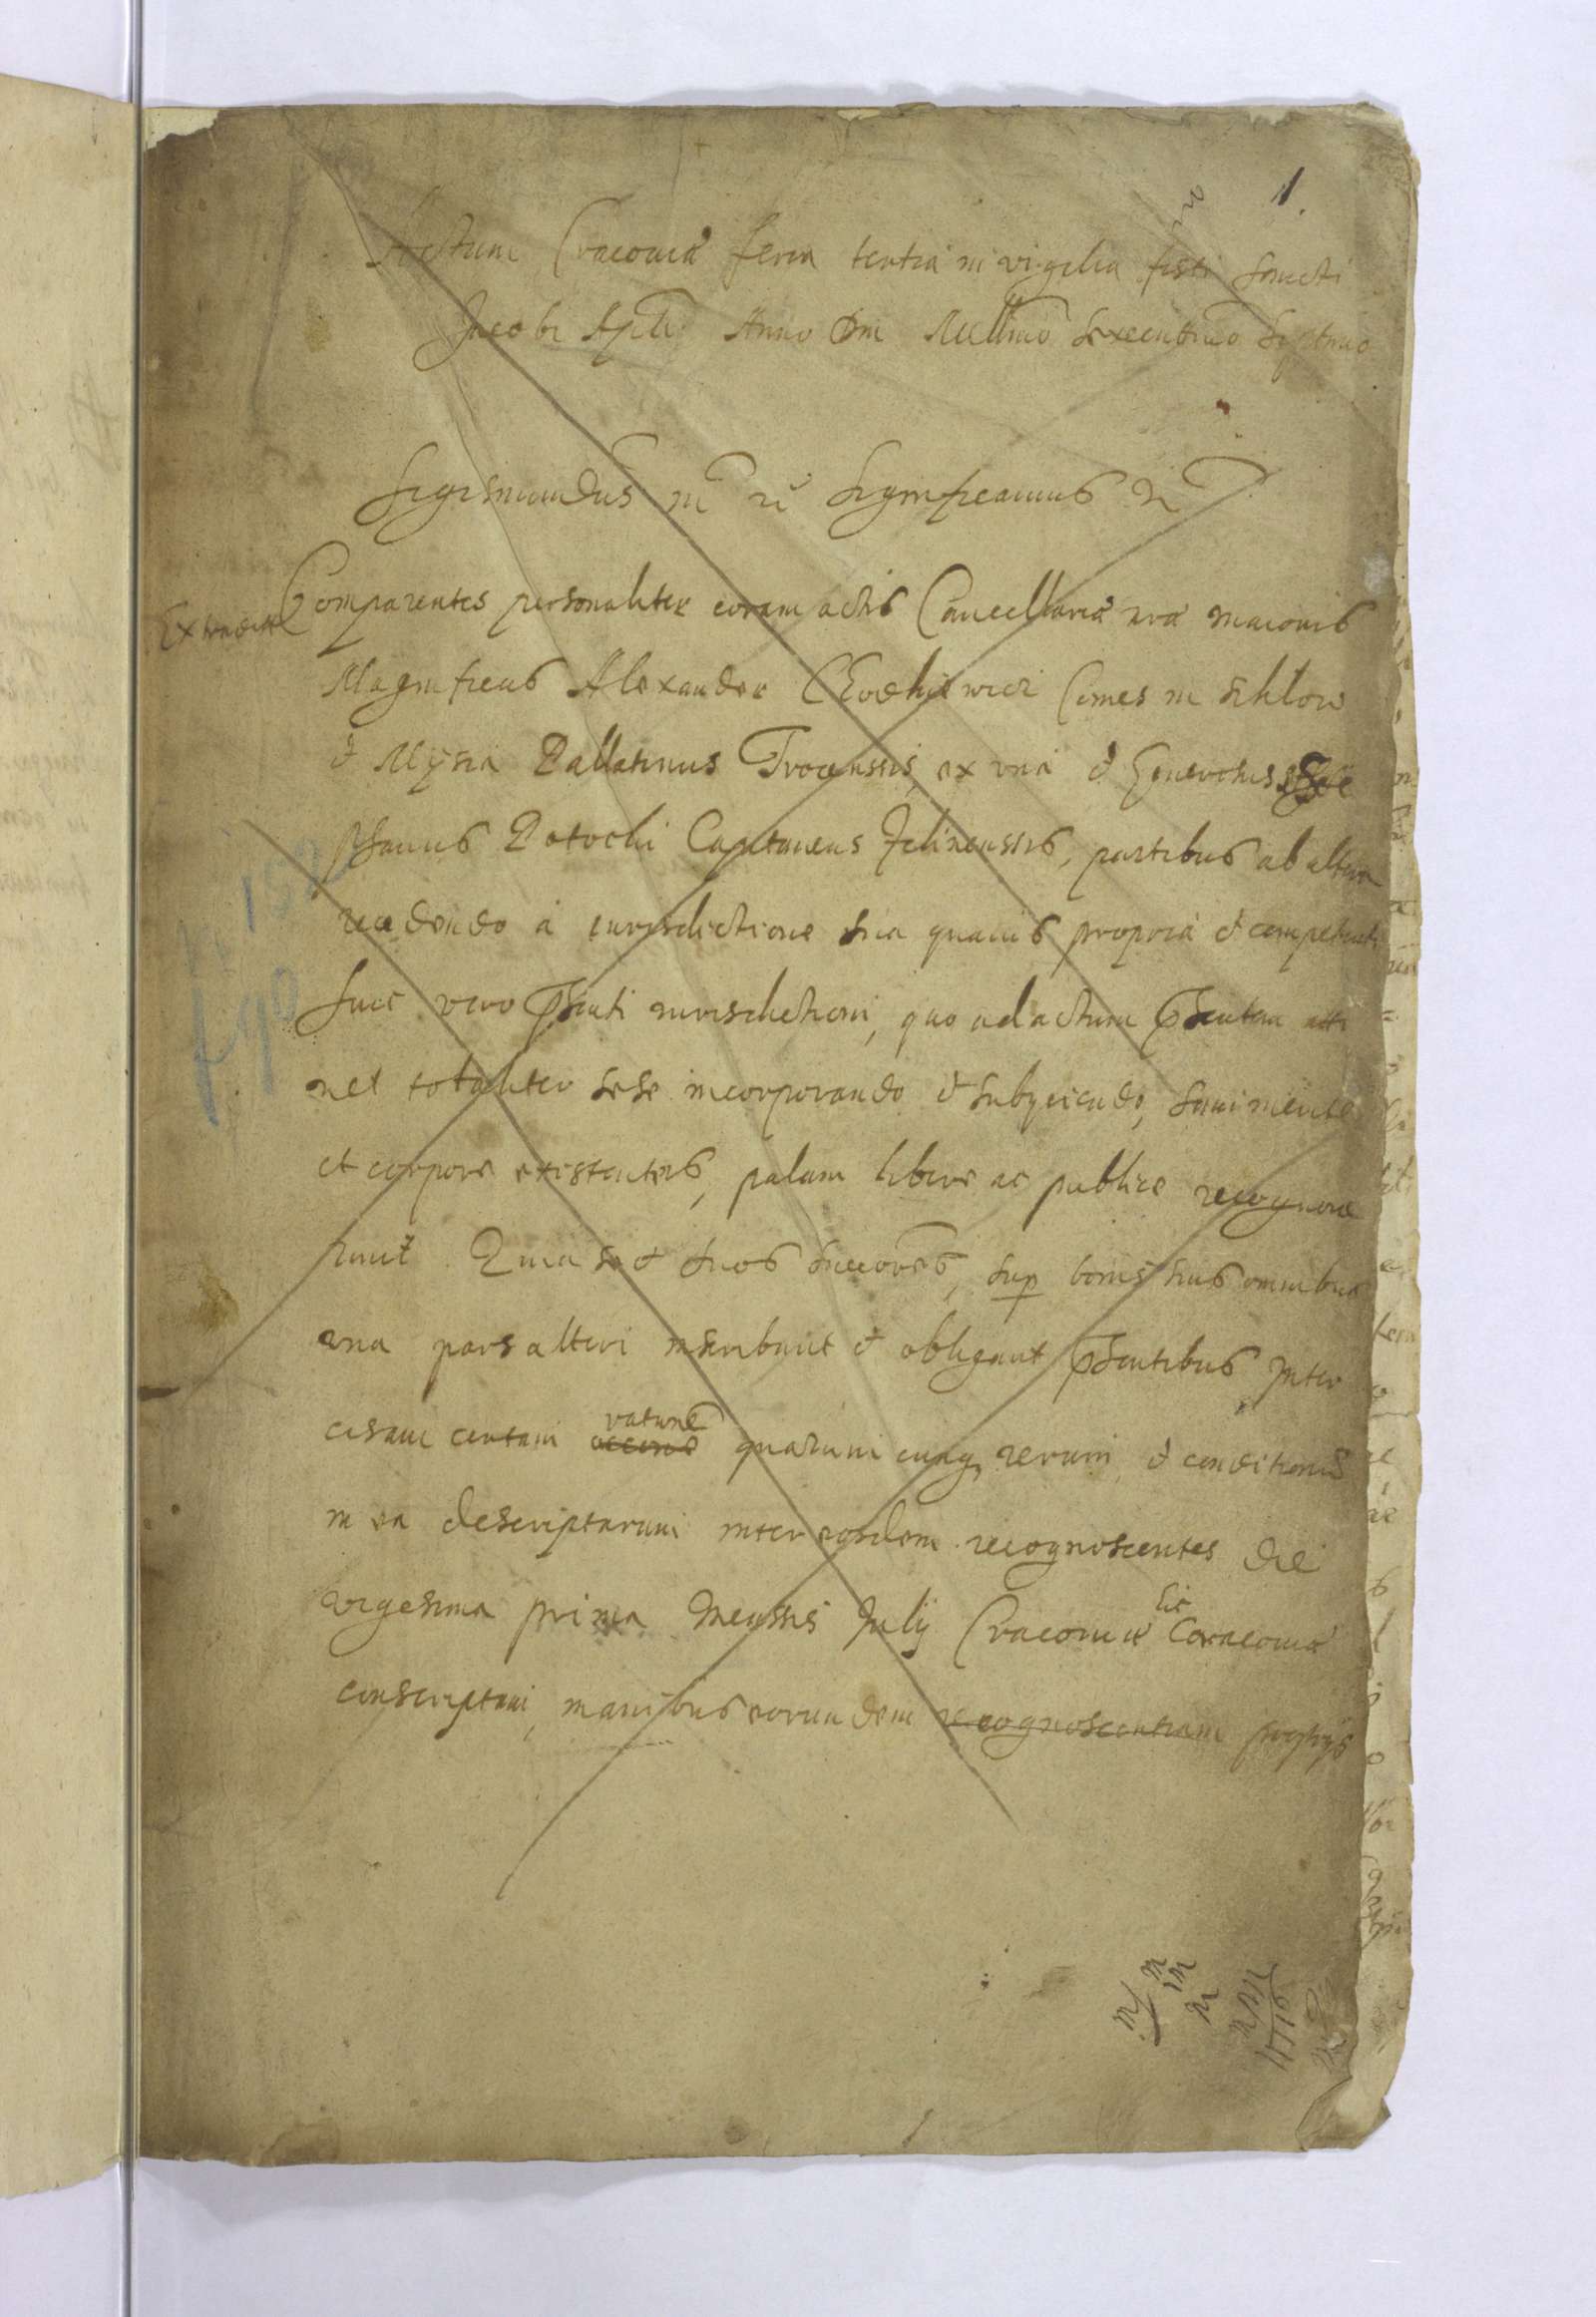 1.
Actum Cracoviæ feria tertia in vigilia festi Sancti
Jacobi Apli Anno Dni Millimo Sexcentimo Septimo
Sigismundus III etc Significamus etc
Extradita
Comparentes personaliter coram actis Cancellariæ nræ maioris
Magnificus Alexander Chodkiewicz Comes in Schklow
et Mysza Pallatinus Trocenssis, ex una et Generosus Ste
phanus Potochi Capitaneus Felinenssis, partibus ab altera
recedendo à iurisdictione sua quavis propria et competenti
huic vero pńsenti iurisdictioni, quo ad actum pńsentem atti
net totaliter sese incorporando et subyciendo, sani mente
et corpore existentes, palam libere ac publice recognove
runt. Quia se et suos succores, sup bonis suis omnibus
una pars alteri inscribunt et obligant pńsentibus Inter
cisam certam ratione quarumcunq rerum et conditionum
in ea descriptarum inter eosdem recognoscentes die
vigesima prima Menssis Julij Cracoviæ hic Coracoviæ
conscriptam, manibus eorundem recognoscentium proprijs